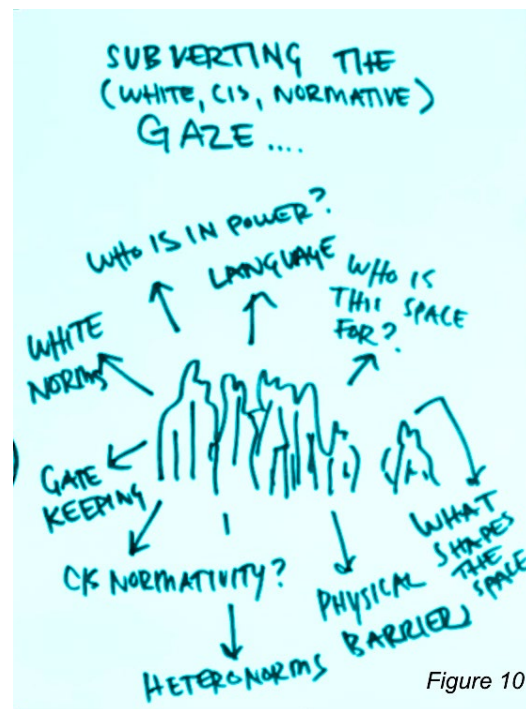 SUBVERTING THE
(WHITE, CIS, NORMATIVE)
GAZE ....
WHO IS IN POWER?
LANGUAGE
WHO IS
THIS SPACE
FOR?
WHITE
NORMS
GATE
KEEPING
CIS NORMATIVITY?
HETERONORMS
PHYSICAL
BARRIERS
WHAT
SHAPES
THE
SPACE
Figure 10